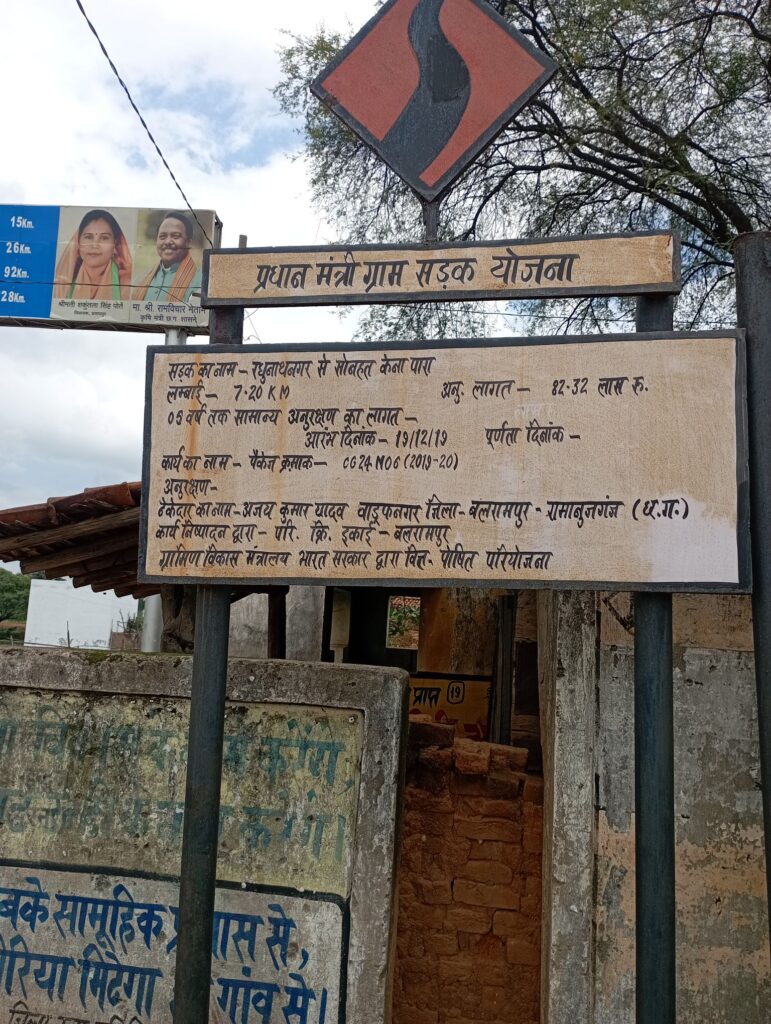 15Km.
26Km.
92Km.
28Km.
श्रीमती शकुंतला सिंह पोर्ते
मा. श्री. रामविचार नेताम
कृषि मंत्री छ.ग. शासन
प्रधान मंत्री ग्राम सड़क योजना
सड़क का नाम - रघुनाथनगर से सोनहत केना पारा
लम्बाई - 7.20 KM अनु. लागत - 82.32 लाख रु.
05 वर्ष तक सामान्य अनुरक्षण का लागत -
आरंभ दिनांक - 19/12/19 पूर्णता दिनांक -
कार्य का नाम - पैकेज क्रमाक - CG24 M06 (2019-20)
अनुरक्षण -
ठेकेदार का नाम - अजय कुमार यादव वाड्रफनगर जिला - बलरामपुर - रामानुजगंज (छ.ग.)
कार्य निष्पादन द्वारा - परि. क्रि. इकाई - बलरामपुर
ग्रामिण विकास मंत्रालय भारत सरकार द्वारा वित्त - पोषित परियोजना
प्राप्त 19
करेंगे,
करेंगे।
बके सामूहिक प्रयास से,
मिटेगा गांव से।